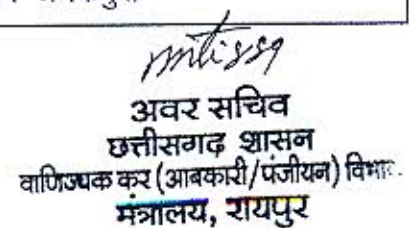 अवर सचिव
छत्तीसगढ़ शासन
वाणिज्यिक कर (आबकारी/पंजीयन) विभाग
मंत्रालय, रायपुर